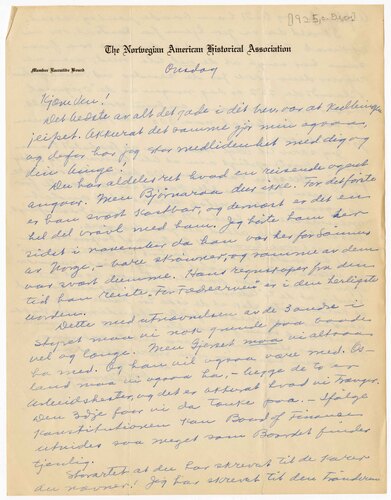 [1925, -
The Norwegian American Historical Association
Member Executive Board
Onsdag
Kjære den!
Det bedste av alt det gode i dit brev var at
jeipet. Akkurat det samme gjør min ogsaa,
og derfor har jeg stor medlidenhet med dig og
din
Du har aldeles ret hvad en reisende agent
angaar. Men Bjørnaraa dur ikke. For det første
er han svært kostbar, og dernæst er det en
hel del vrøvl med ham. Jeg hørte ham her
sidst i november da han var her for Sønner
av Norge, – bare skrønner, og somme av dem
var svært dumme. Hans regnskaper fra den
tid han reiste "For Fædrearven" er i den herligste
uorden.
Dette med utnævnelsen av de 3 andre i
styret maa vi nok grunde paa baade
vel og længe. Men Gjerset maa vi altsaa
ha med. Og han vil ogsaa være med.
land maa vi ogsaa ha, – begge de to er
arbeidskarer, og det er akkurat hvad vi trenger.
Den 3dje faar vi da tænke paa. – Ifølge
Konstitutionen kan Board of Finances
utvides saa meget som Boardet finder
tjenlig.
Storartet at du har skrevet til de
du nævner! Jeg har skrevet til den